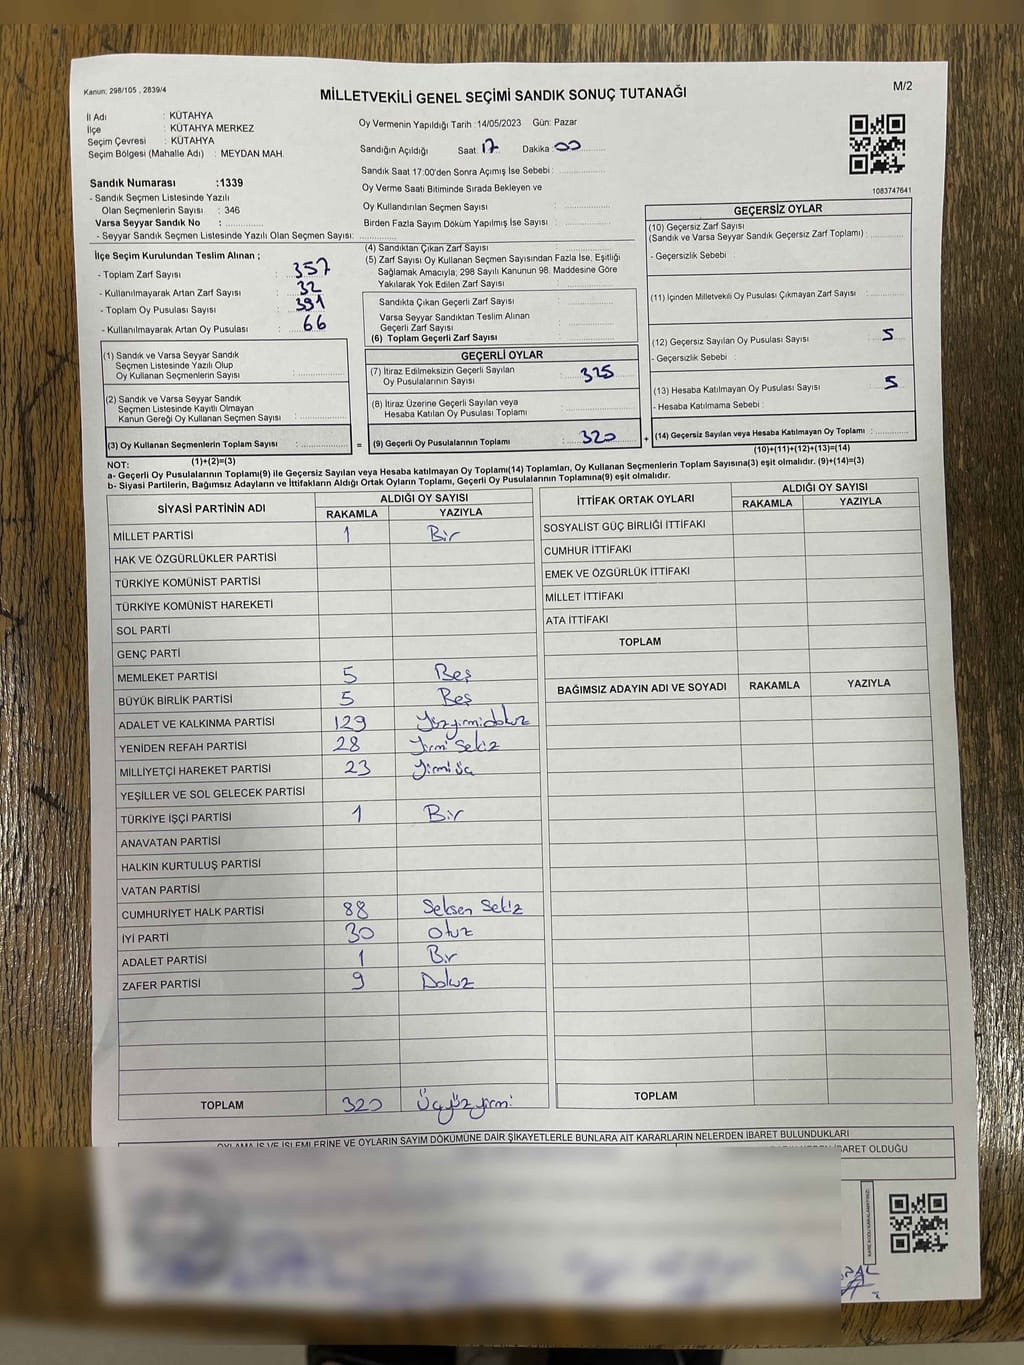 Kanun, 298/105 , 2839/4
MİLLETVEKİLİ GENEL SEÇİMİ SANDIK SONUÇ TUTANAĞI
M/2
İl Adı : KÜTAHYA
İlçe : KÜTAHYA MERKEZ
Seçim Çevresi : KÜTAHYA
Seçim Bölgesi (Mahalle Adı) : MEYDAN MAH.
Sandık Numarası :1339
- Sandık Seçmen Listesinde Yazılı
Olan Seçmenlerin Sayısı : 346
Varsa Seyyar Sandık No :
- Seyyar Sandık Seçmen Listesinde Yazılı Olan Seçmen Sayısı:
Oy Vermenin Yapıldığı Tarih :14/05/2023 Gün: Pazar
Sandığın Açıldığı Saat 17 Dakika : 00
Sandık Saat 17:00'den Sonra Açımış İse Sebebi :
Oy Verme Saati Bitiminde Sırada Bekleyen ve
Oy Kullandırılan Seçmen Sayısı :
Birden Fazla Sayım Döküm Yapılmış İse Sayısı :
1083747641
İlçe Seçim Kurulundan Teslim Alınan ;
- Toplam Zarf Sayısı : 357
- Kullanılmayarak Artan Zarf Sayısı : 32
- Toplam Oy Pusulası : 391
- Kullanılmayarak Artan Oy Pusulası : 66
(1) Sandık ve Varsa Seyyar Sandık
Seçmen Listesinde Yazılı Olup
Oy Kullanan Seçmenlerin Sayısı :
(2) Sandık ve Varsa Seyyar Sandık
Seçmen Listesinde Kayıtlı Olmayan
Kanun Gereği Oy Kullanan Seçmen Sayısı :
(3) Oy Kullanan Seçmenlerin Toplam Sayısı : =
(1)+(2)=(3)
(4) Sandıktan Çıkan Zarf Sayısı :
(5) Zarf Sayısı Oy Kullanan Seçmen Sayısından Fazla İse, Eşitliği
Sağlamak Amacıyla; 298 Sayılı Kanunun 98. Maddesine Göre
Yakılarak Yok Edilen Zarf Sayısı :
Sandıkta Çıkan Geçerli Zarf Sayısı :
Varsa Seyyar Sandıktan Teslim Alınan
Geçerli Zarf Sayısı :
(6) Toplam Geçerli Zarf Sayısı :
GEÇERLİ OYLAR
(7) İtiraz Edilmeksizin Geçerli Sayılan
Oy Pusulalarının Sayısı : 325
(8) İtiraz Üzerine Geçerli Sayılan veya
Hesaba Katılan Oy Pusulası Toplamı :
(9) Geçerli Oy Pusulalarının Toplamı : 320 +
GEÇERSİZ OYLAR
(10) Geçersiz Zarf Sayısı
(Sandık ve Varsa Seyyar Sandık Geçersiz Zarf Toplamı) :
- Geçersizlik Sebebi :
(11) İçinden Milletvekili Oy Pusulası Çıkmayan Zarf Sayısı :
(12) Geçersiz Sayılan Oy Pusulası Sayısı : 5
- Geçersizlik Sebebi :
(13) Hesaba Katılmayan Oy Pusulası Sayısı : 5
- Hesaba Katılmama Sebebi :
(14) Geçersiz Sayılan veya Hesaba Katılmayan Oy Toplamı :
(10)+(11)+(12)+(13)=(14)
NOT:
a- Geçerli Oy Pusulalarının Toplamı(9) ile Geçersiz Sayılan veya Hesaba katılmayan Oy Toplamı(14) Toplamları, Oy Kullanan Seçmenlerin Toplam Sayısına(3) eşit olmalıdır. (9)+(14)=(3)
b- Siyasi Partilerin, Bağımsız Adayların ve İttifakların Aldığı Ortak Oyların Toplamı, Geçerli Oy Pusulalarının Toplamına(9) eşit olmalıdır.
SİYASİ PARTİNİN ADI ALDIĞI OY SAYISI
RAKAMLA YAZIYLA
MİLLET PARTİSİ 1 Bir
HAK VE ÖZGÜRLÜKLER PARTİSİ
TÜRKİYE KOMÜNİST PARTİSİ
TÜRKİYE KOMÜNİST HAREKETİ
SOL PARTİ
GENÇ PARTİ
MEMLEKET PARTİSİ 5 Beş
BÜYÜK BİRLİK PARTİSİ 5 Beş
ADALET VE KALKINMA PARTİSİ 129 Yüzyirmidokuz
YENİDEN REFAH PARTİSİ 28 Yirmi Sekiz
MİLLİYETÇİ HAREKET PARTİSİ 23 Yirmiüç
YEŞİLLER VE SOL GELECEK PARTİSİ
TÜRKİYE İŞÇİ PARTİSİ 1 Bir
ANAVATAN PARTİSİ
HALKIN KURTULUŞ PARTİSİ
VATAN PARTİSİ
CUMHURİYET HALK PARTİSİ 88 Seksen Sekiz
İYİ PARTİ 30 Otuz
ADALET PARTİSİ 1 Bir
ZAFER PARTİSİ 9 Dokuz
TOPLAM 320 Üçyüzyirmi
İTTİFAK ORTAK OYLARI ALDIĞI OY SAYISI
RAKAMLA YAZIYLA
SOSYALİST GÜÇ BİRLİĞİ İTTİFAKI
CUMHUR İTTİFAKI
EMEK VE ÖZGÜRLÜK İTTİFAKI
MİLLET İTTİFAKI
ATA İTTİFAKI
TOPLAM
BAĞIMSIZ ADAYIN ADI VE SOYADI RAKAMLA YAZIYLA
TOPLAM
OYLAMA İŞ VE İŞLEMLERİNE VE OYLARIN SAYIM DÖKÜMÜNE DAİR ŞİKAYETLERLE BUNLARA AİT KARARLARIN NELERDEN İBARET BULUNDUKLARI
İBARET OLDUĞU